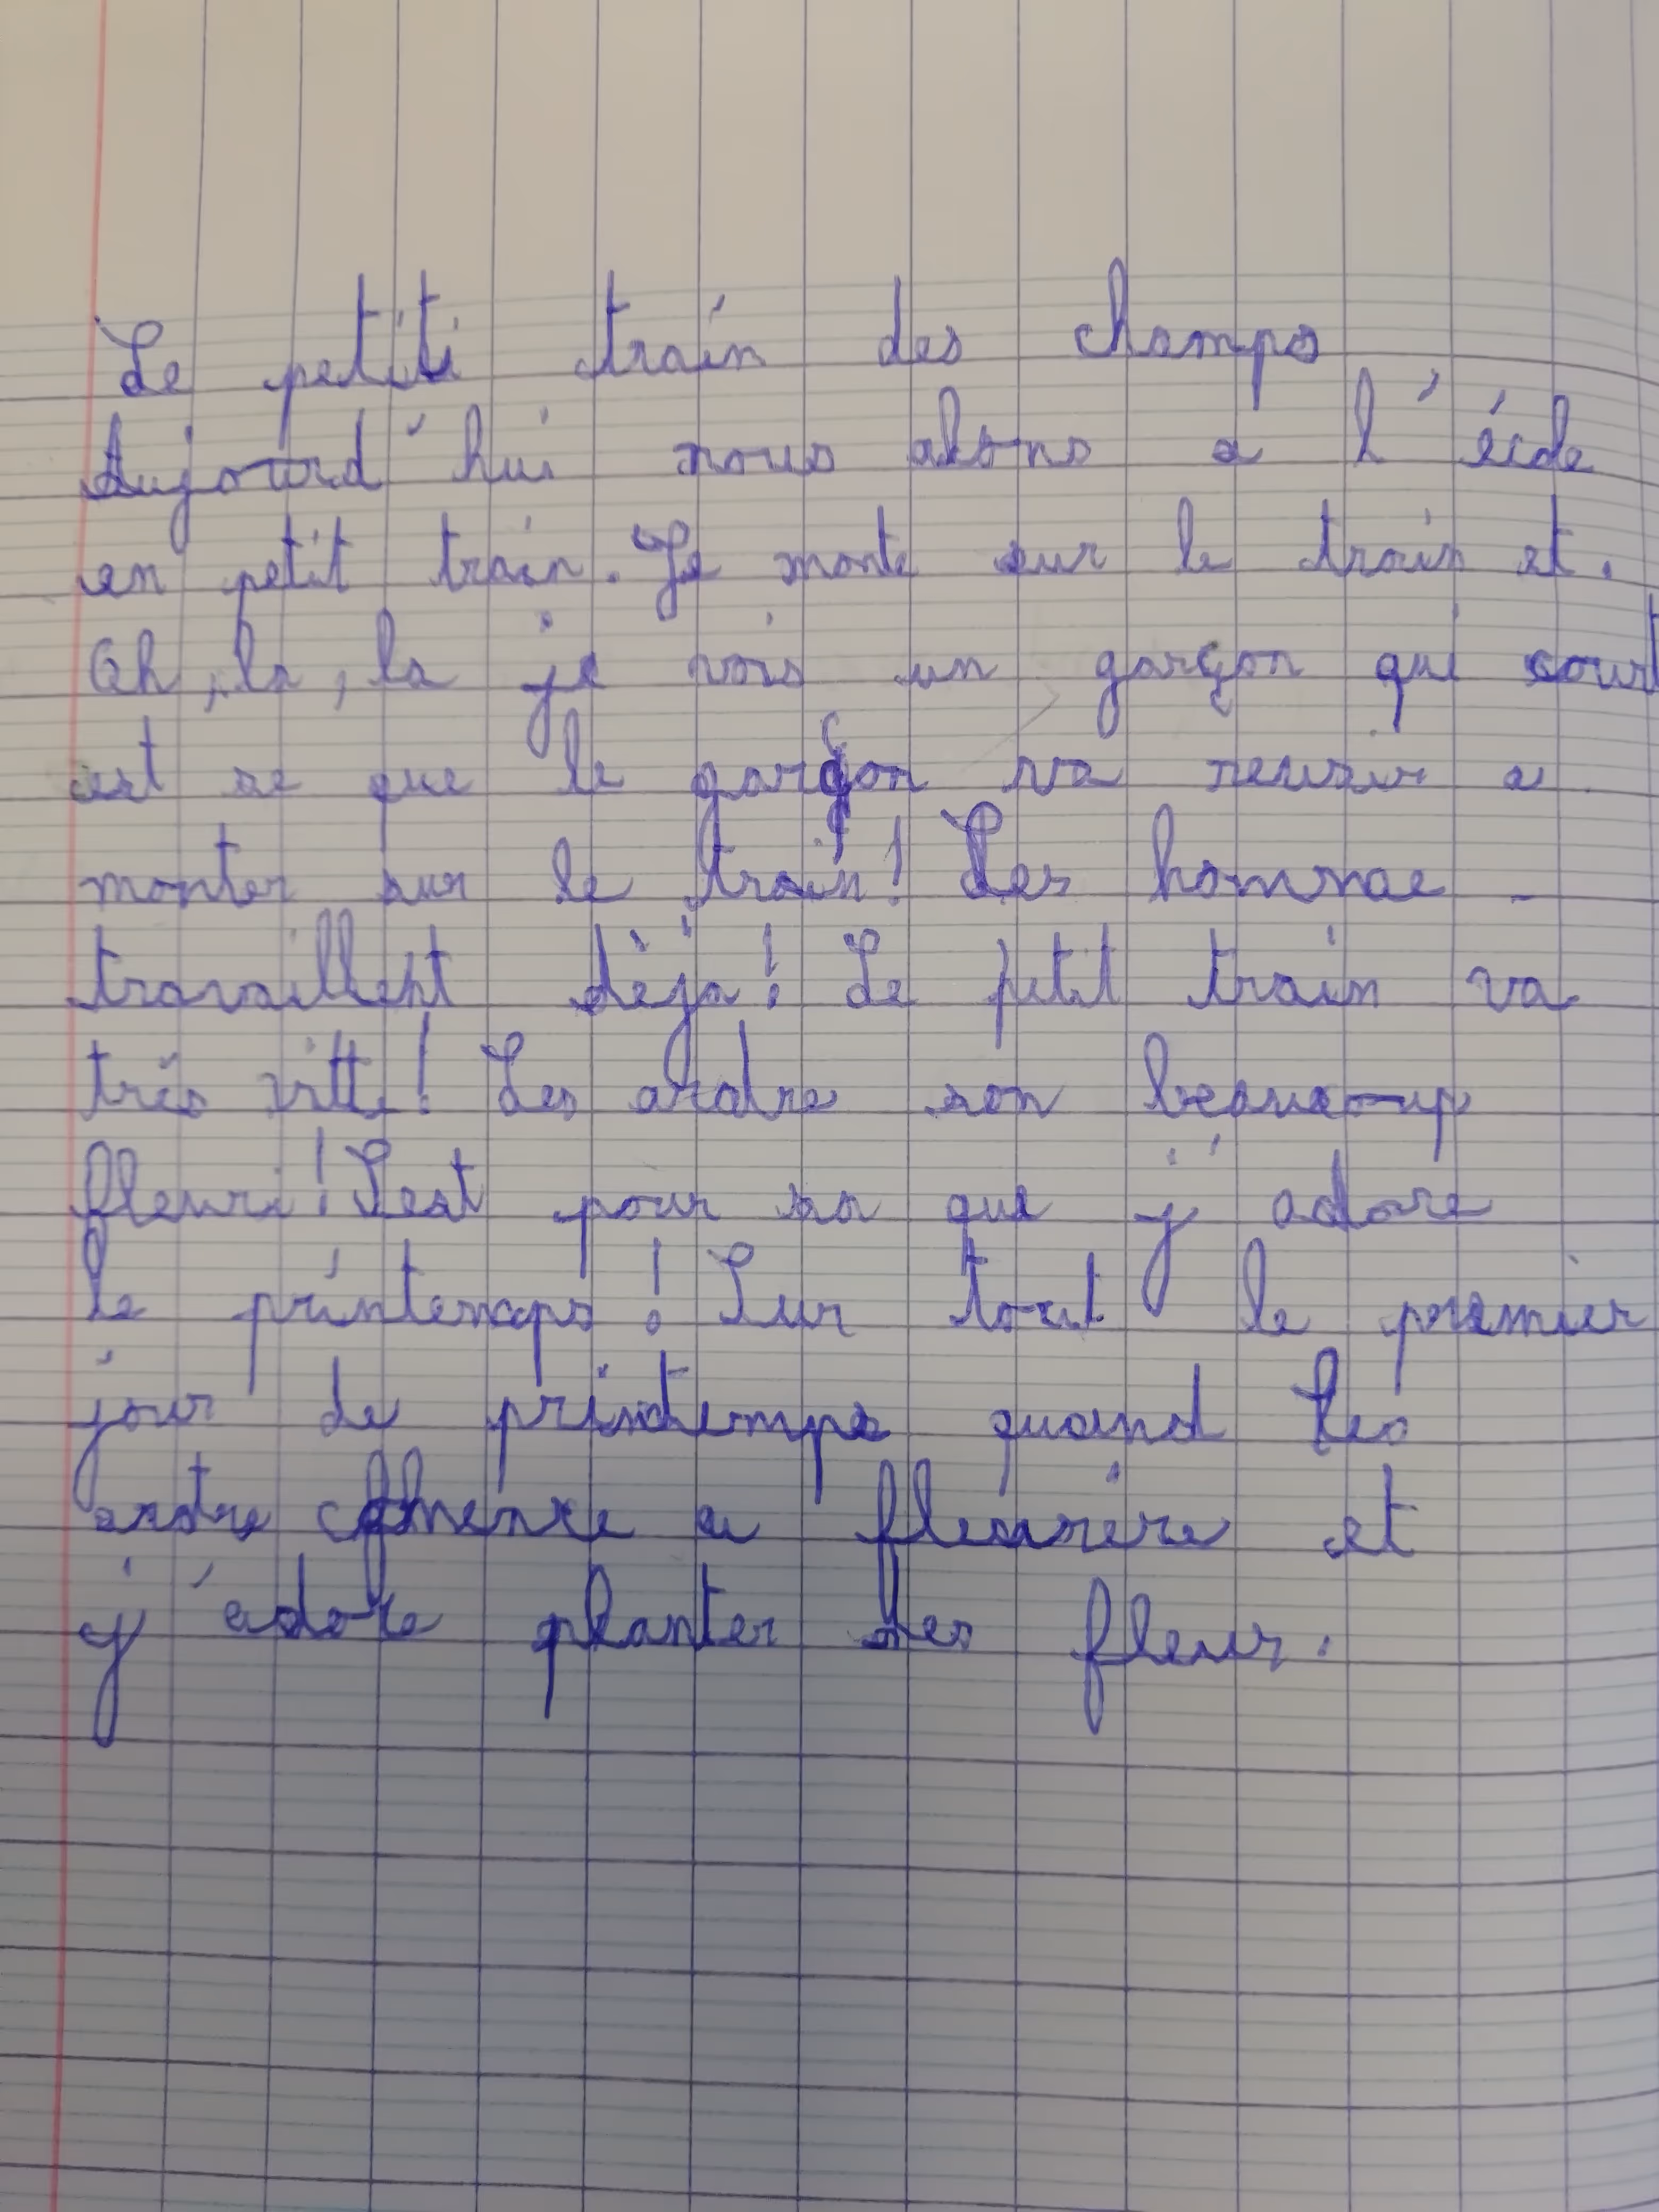 Le petiti train des champs
Aujourd'hui nous alons a l'école
en petit train. Je monte sur le train et.
Oh, la, la je vois un garçon qui court
est se que le garçon va reusir a
monter sur le train! Les hommae
travaillent dèja! Le petit train va
très vitte! Les arabre son beaucoup
fleuri! Sest pour sa que j'adore
le printemps! Sur tout le premier
jour de printemps quand les
arabre comence a fleurire et
j'adore planter des fleur.